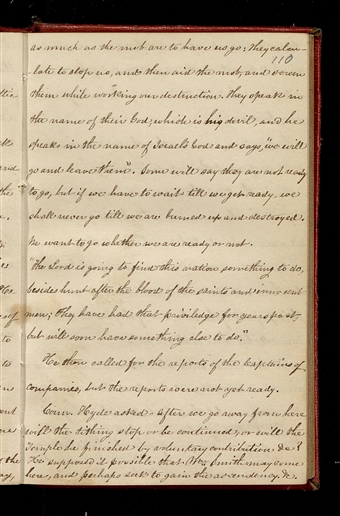 as much as the mob are to have us go; they calcu-
110
late to stop us, and then aid the mob, and screen
them while working our destruction. They speak in
the name of their God, which is big devil, and he
speaks in the name of Israel's God and says, "we will
go and leave them". Some will say they are not ready
to go, but if we have to wait till we get ready, we
shall never go till we are burned up and destroyed.
We want to go whether we are ready or not.
"The Lord is going to find this nation something to do,
beside hunt after the blood of the saints and innocent
men; they have had that priviledge for years past,
but will soon have something else to do."
He then called for the reports of the Captains of
companies, but the reports were not yet ready.
Coun. Hyde asked - After we go away from here
will the tithing stop or be continued, or will the
Temple be finished by voluntary contribution &c?
He supposed it possible that Wm. Smith may come
here, and perhaps seek to gain the ascendency, &c.